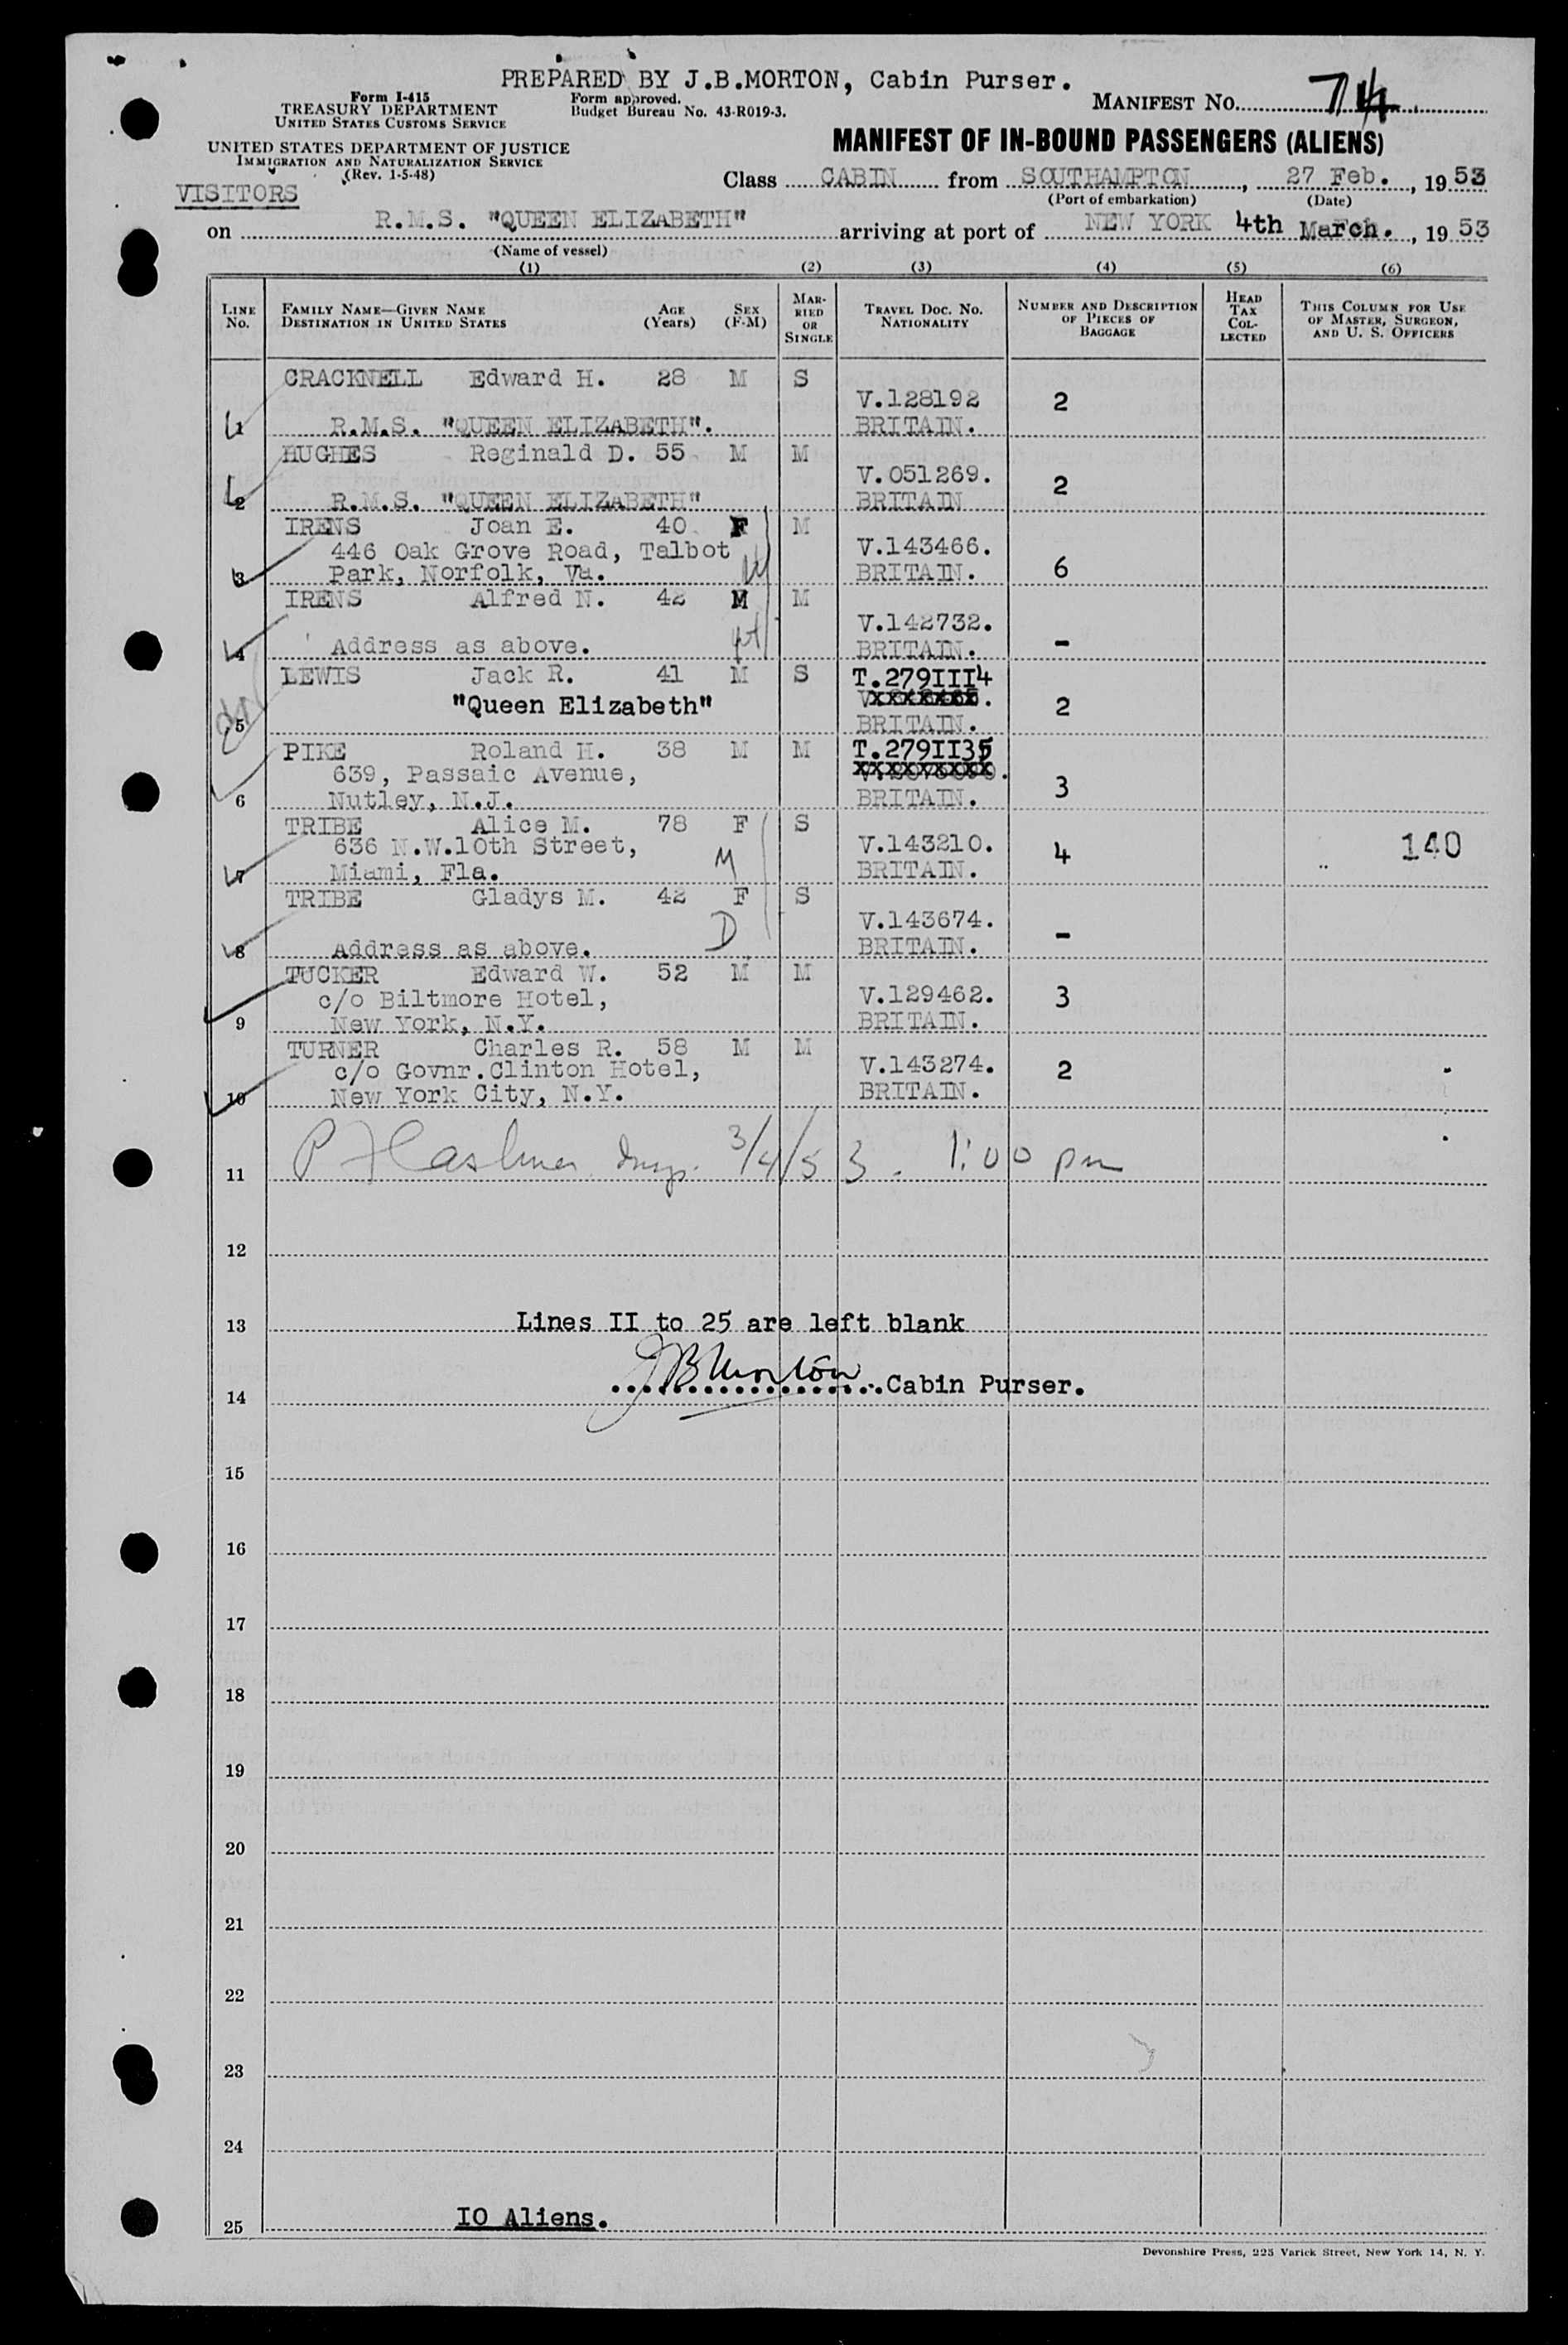 PREPARED BY J.B.MORTON, Cabin Purser.
Form I-415
TREASURY DEPARTMENT
UNITED STATES CUSTOMS SERVICE
Form approved.
Budget Bureau No. 43-R019-3.
MANIFEST No. 74
UNITED STATES DEPARTMENT OF JUSTICE
IMMIGRATION AND NATURALIZATION SERVICE
(Rev. 1-5-48)
MANIFEST OF IN-BOUND PASSENGERS (ALIENS)
VISITORS
Class CABIN from SOUTHAMPTON, 27 Feb., 1953
(Port of embarkation) (Date)
on R.M.S. "QUEEN ELIZABETH" arriving at port of NEW YORK 4th March., 1953
(Name of vessel)
(1) (2) (3) (4) (5) (6)
LINE No. FAMILY NAME—GIVEN NAME DESTINATION IN UNITED STATES AGE (Years) SEX (F-M) MARRIED OR SINGLE TRAVEL DOC. NO. NATIONALITY NUMBER AND DESCRIPTION OF PIECES OF BAGGAGE HEAD TAX COLLECTED THIS COLUMN FOR USE OF MASTER, SURGEON, AND U. S. OFFICERS
CRACKNELL Edward H. 28 M S
V.128192 2
1 R.M.S. "QUEEN ELIZABETH". BRITAIN.
HUGHES Reginald D. 55 M M
V.051269. 2
2 R.M.S. "QUEEN ELIZABETH" BRITAIN
IRENS Joan E. 40 F M
446 Oak Grove Road, Talbot V.143466.
3 Park, Norfolk, Va. BRITAIN. 6
IRENS Alfred N. 42 M M
V.142732.
4 Address as above. BRITAIN. -
LEWIS Jack R. 41 M S T.279III4
"Queen Elizabeth" 2
5 BRITAIN.
PIKE Roland H. 38 M M T.279II35
639, Passaic Avenue,
6 Nutley, N.J. BRITAIN. 3
TRIBE Alice M. 78 F S
636 N.W.10th Street, M V.143210. 4 140
7 Miami, Fla. BRITAIN.
TRIBE Gladys M. 42 F S
D V.143674. -
8 Address as above. BRITAIN.
TUCKER Edward W. 52 M M
c/o Biltmore Hotel, V.129462. 3
9 New York, N.Y. BRITAIN.
TURNER Charles R. 58 M M
c/o Govnr.Clinton Hotel, V.143274. 2
10 New York City, N.Y. BRITAIN.
11 P 3/4/53. 1:00 pm
12
13 Lines II to 25 are left blank
14 JBMorton Cabin Purser.
15
16
17
18
19
20
21
22
23
24
25 IO Aliens.
Devonshire Press, 225 Varick Street, New York 14, N. Y.